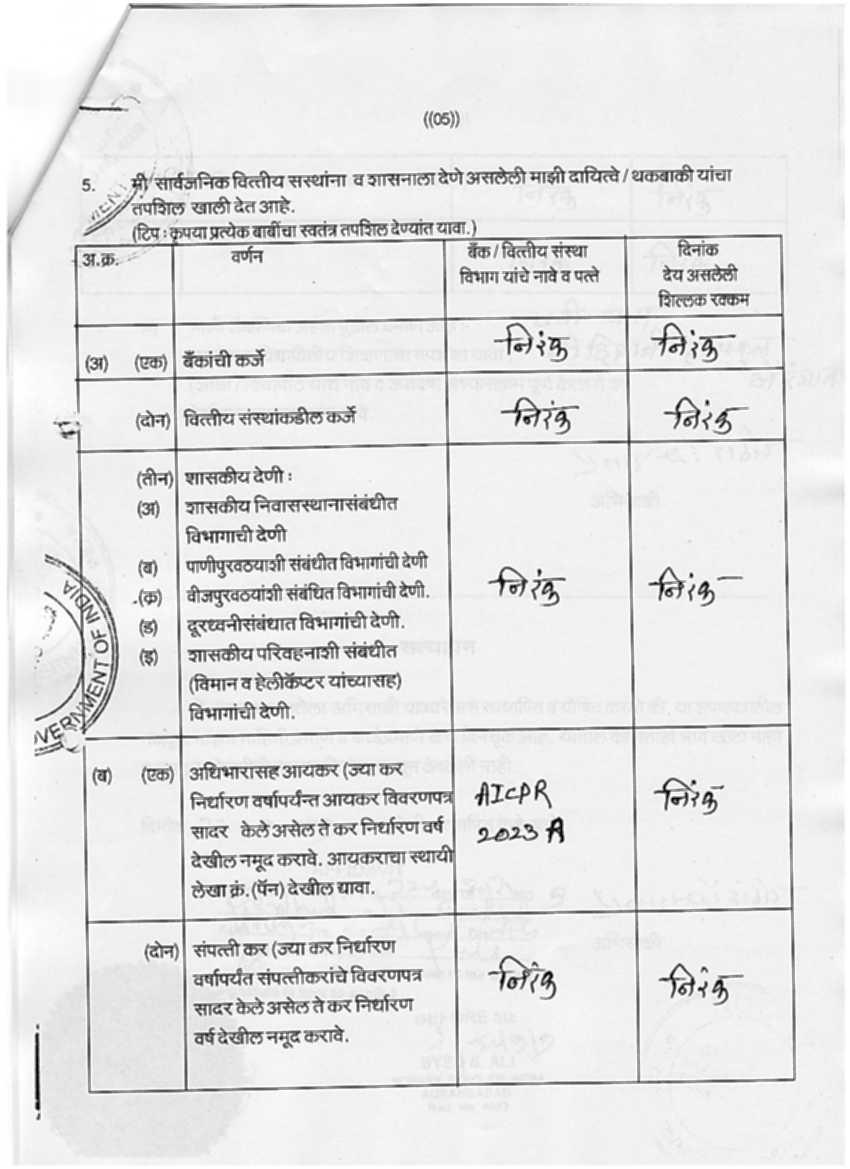 ((05))
5. मी सार्वजनिक वित्तीय सस्थांना व शासनाला देणे असलेली माझी दायित्वे / थकबाकी यांचा
तपशिल खाली देत आहे.
(टिप : कृपया प्रत्येक बाबींचा स्वतंत्र तपशिल देण्यांत यावा.)
अ.क्र. वर्णन बँक / वित्तीय संस्था दिनांक
विभाग यांचे नावे व पत्ते देय असलेली
शिल्लक रक्कम
(अ) (एक) बँकांची कर्जे निरंकु निरंकु
(दोन) वित्तीय संस्थांकडील कर्जे निरंकु निरंकु
(तीन) शासकीय देणी :
(अ) शासकीय निवासस्थानासंबंधीत
विभागाची देणी
(ब) पाणीपुरवठयाशी संबंधीत विभागांची देणी
(क) वीजपुरवठयांशी संबंधित विभागांची देणी. निरंकु निरंकु
(ड) दूरध्वनीसंबधात विभागांची देणी.
(इ) शासकीय परिवहनाशी संबंधीत
(विमान व हेलीकॅप्टर यांच्यासह)
विभागांची देणी.
(ब) (एक) अधिभारासह आयकर (ज्या कर
निर्धारण वर्षापर्यन्त आयकर विवरणपत्र AICPR निरंकु
सादर केले असेल ते कर निर्धारण वर्ष 2023 A
देखील नमूद करावे. आयकराचा स्थायी
लेखा क्रं.(पॅन) देखील द्यावा.
(दोन) संपत्ती कर (ज्या कर निर्धारण
वर्षापर्यंत संपत्तीकरांचे विवरणपत्र निरंकु निरंकु
सादर केले असेल ते कर निर्धारण
वर्ष देखील नमूद करावे.
GOVERNMENT OF INDIA